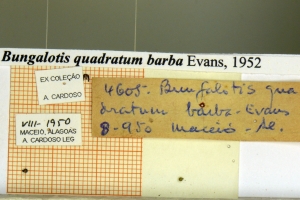 Bungalotis quadratum barba Evans, 1952
EX COLEÇÃO
+
A. CARDOSO
4605- Bungalotis qua
dratum barba - Evans
8-950 Maceió - Al.
VIII - 1950
MACEIÓ, ALAGOAS
A. CARDOSO LEG